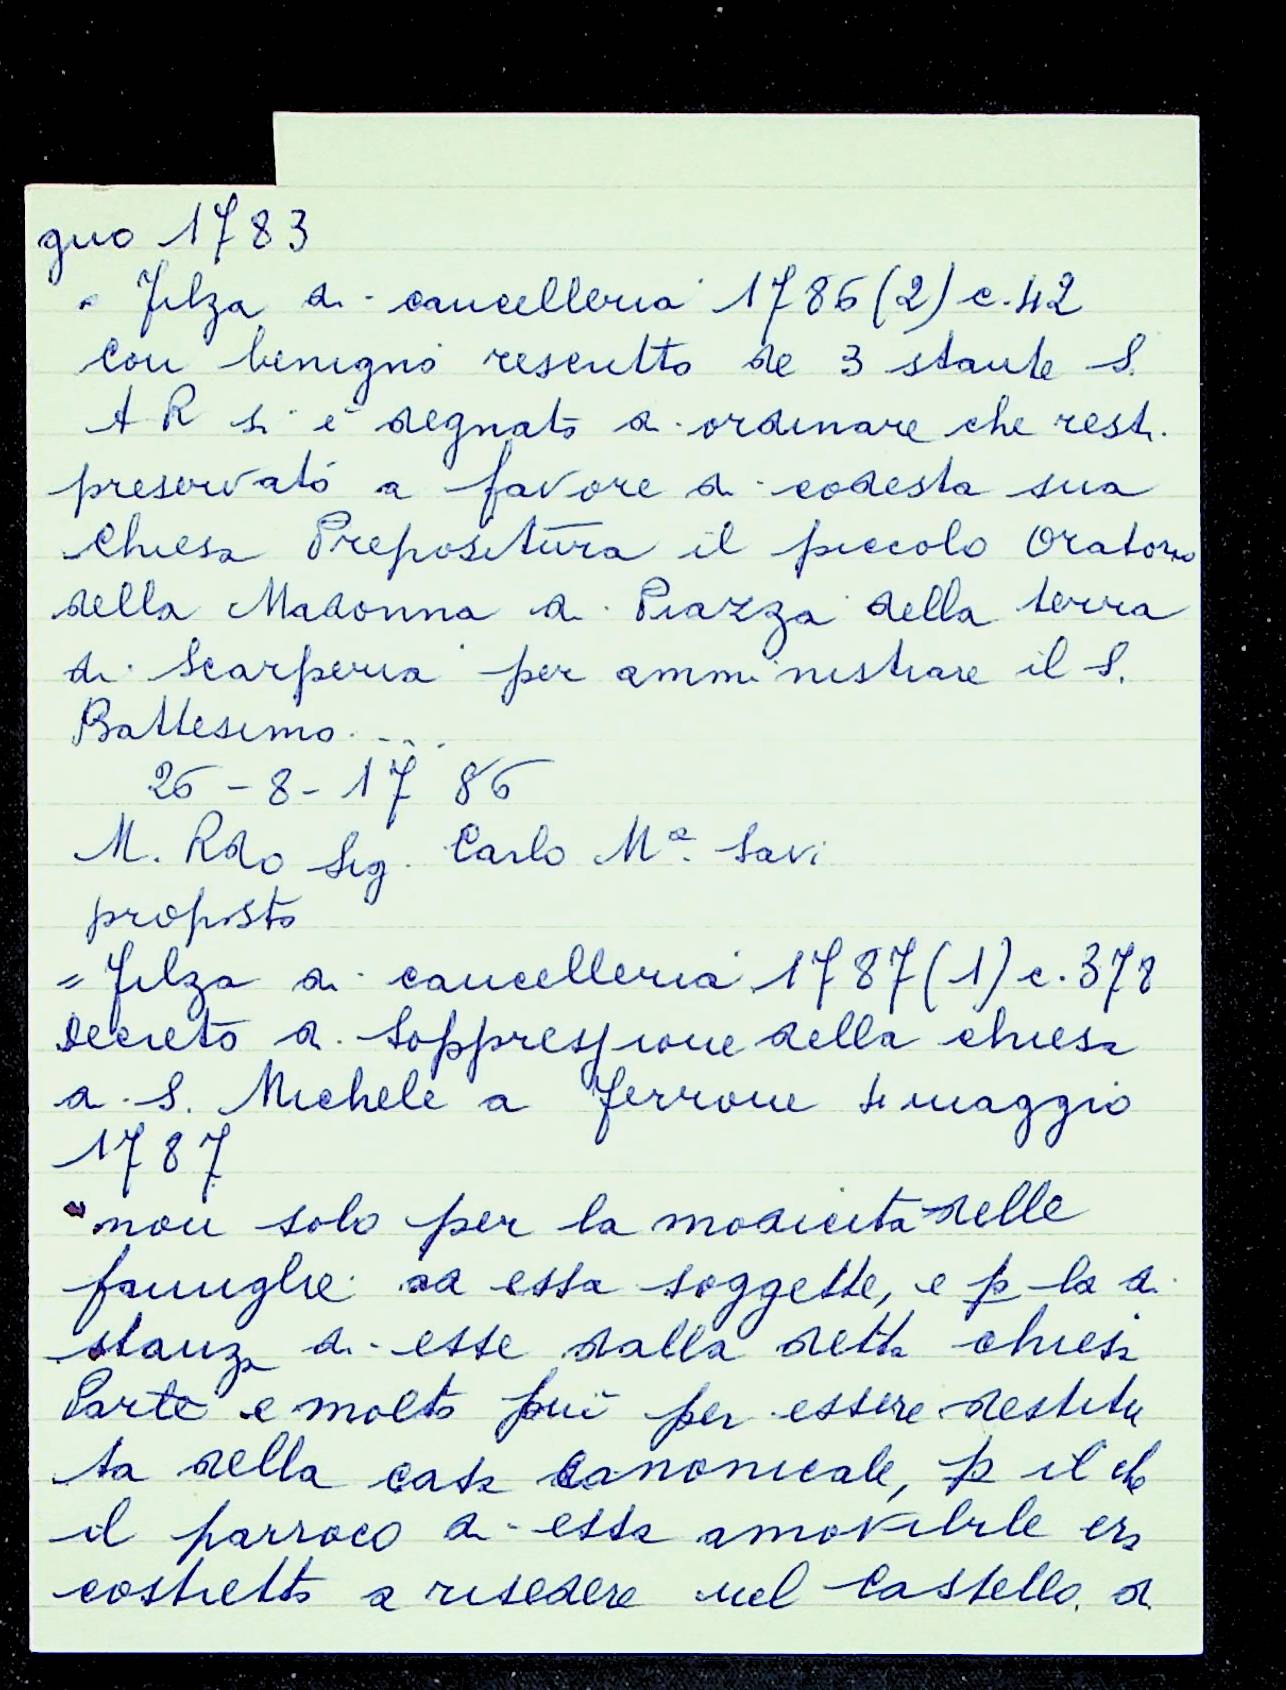 gno 1783
= Filza di cancelleria 1786 (2) c. 42
Con benigno rescritto de 3 stante S.
A R si è degnato di ordinare che resti
preservato a favore di codesta sua
Chiesa Prepositura il piccolo Oratorio
della Madonna di Piazza della terra
di Scarperia per amministrare il S.
Battesimo ....
26-8-1786
M. Rdo Sig. Carlo Mª. Savi
proposto
= Filza di cancelleria 1787 (1) c. 378
Decreto di soppressione della chiesa
di S. Michele a Ferrone 4 maggio
1787
"non solo per la modicità delle
famiglie ad essa soggette, e p la di
stanza di esse dalla detta chiesa
Parte e molto più per essere destitu
ta della casa canonicale, p il che
il parroco di essa amovibile era
costretto a risedere nel Castello di